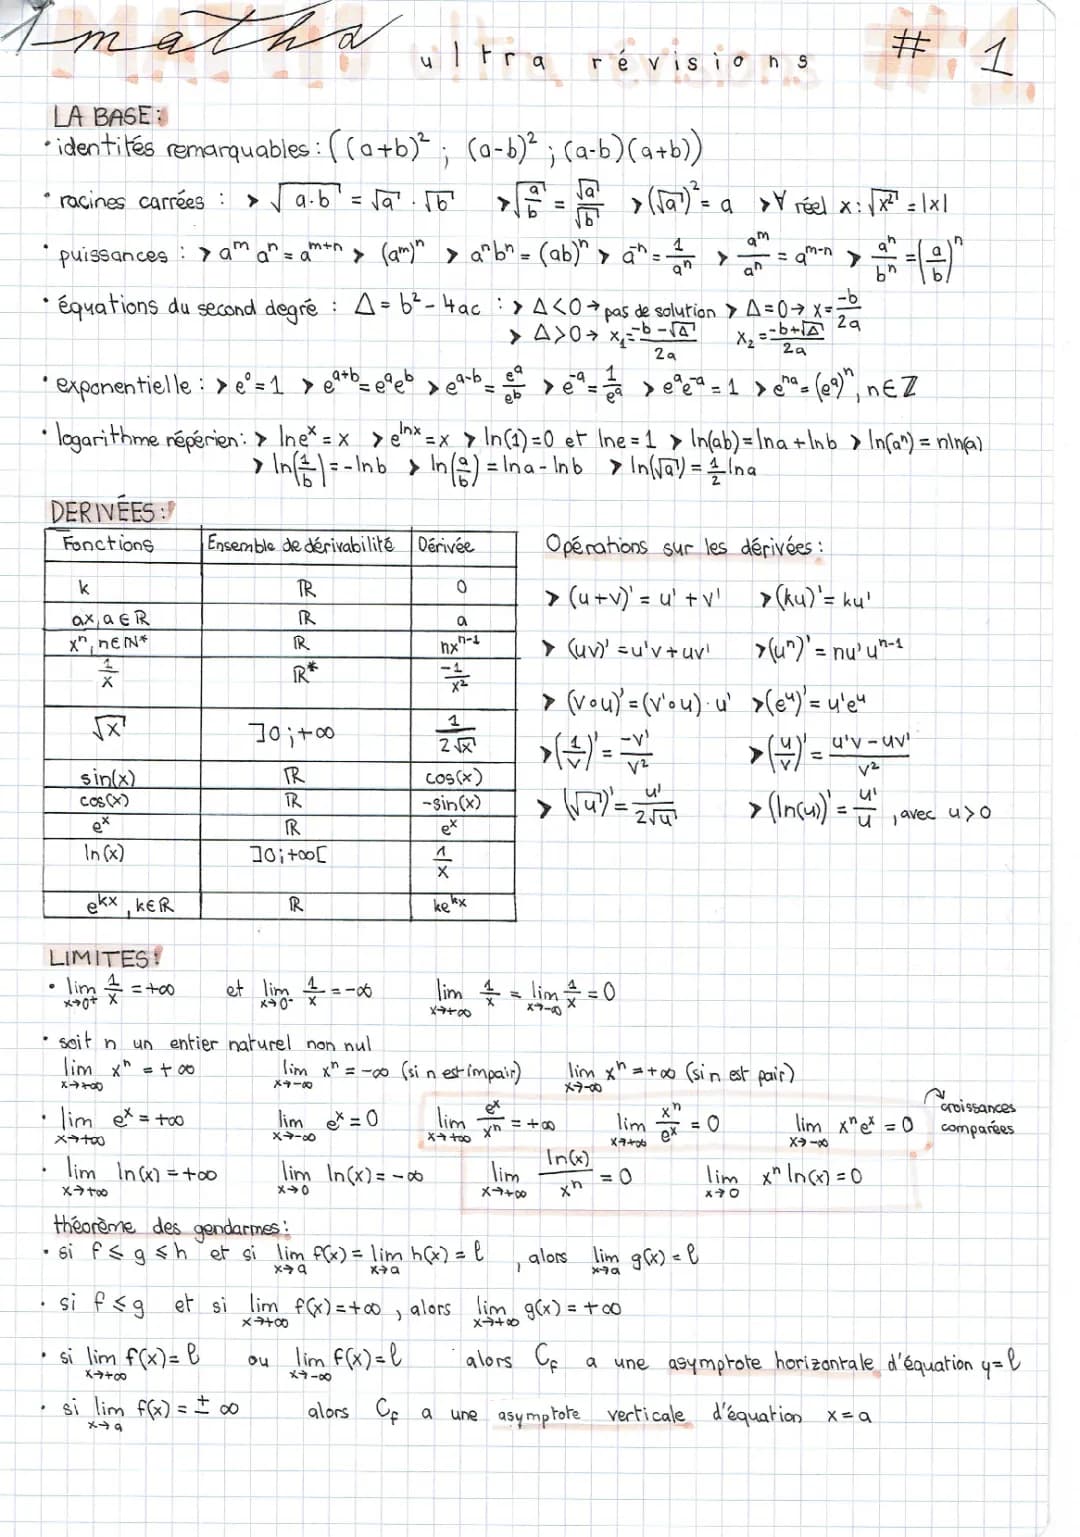 maths ultra révisions #1
LA BASE:
• identités remarquables : ((a+b)² ; (a-b)² ; (a-b)(a+b))
• racines carrées : > √(a.b) = √a . √b > √(a/b) = √a/√b > (√a)² = a > ∀ réel x : √x² = |x|
• puissances : > aᵐ aⁿ = aᵐ⁺ⁿ > (aᵐ)ⁿ > aⁿbⁿ = (ab)ⁿ > a⁻ⁿ = 1/aⁿ > aᵐ/aⁿ = aᵐ⁻ⁿ > aⁿ/bⁿ = (a/b)ⁿ
• équations du second degré : Δ = b² - 4ac : > Δ<0 → pas de solution > Δ=0 → x = -b/2a
> Δ>0 → x₁ = (-b-√Δ)/2a x₂ = (-b+√Δ)/2a
• exponentielle : > e⁰ = 1 > eᵃ⁺ᵇ = eᵃeᵇ > eᵃ⁻ᵇ = eᵃ/eᵇ > e⁻ᵃ = 1/eᵃ > eᵃe⁻ᵃ = 1 > eⁿᵃ = (eᵃ)ⁿ, n∈ℤ
• logarithme népérien : > lneˣ = x > e^(lnx) = x > ln(1)=0 et lne = 1 > ln(ab) = lna + lnb > ln(aⁿ) = nln(a)
> ln(1/b) = -lnb > ln(a/b) = lna - lnb > ln(√a) = 1/2 lna
DERIVÉES :
Fonctions Ensemble de dérivabilité Dérivée
k ℝ 0
ax, a∈ℝ ℝ a
xⁿ, n∈ℕ* ℝ nxⁿ⁻¹
1/x ℝ* -1/x²
√x ]0;+∞ 1/(2√x)
sin(x) ℝ cos(x)
cos(x) ℝ -sin(x)
eˣ ℝ eˣ
ln(x) ]0;+∞[ 1/x
eᵏˣ, k∈ℝ ℝ keᵏˣ
Opérations sur les dérivées :
> (u+v)' = u' + v' > (ku)' = ku'
> (uv)' = u'v + uv' > (uⁿ)' = nu'uⁿ⁻¹
> (v∘u)' = (v'∘u) . u' > (eᵘ)' = u'eᵘ
> (1/v)' = -v'/v² > (u/v)' = (u'v - uv')/v²
> (√u)' = u'/(2√u) > (ln(u))' = u'/u , avec u>0
LIMITES !
• lim x→0⁺ 1/x = +∞ et lim x→0⁻ 1/x = -∞ lim x→+∞ 1/x = lim x→-∞ 1/x = 0
• soit n un entier naturel non nul
lim x→+∞ xⁿ = +∞ lim x→-∞ xⁿ = -∞ (si n est impair) lim x→-∞ xⁿ = +∞ (si n est pair)
• lim x→+∞ eˣ = +∞ lim x→-∞ eˣ = 0 lim x→+∞ eˣ/xⁿ = +∞ lim x→+∞ xⁿ/eˣ = 0 lim x→-∞ xⁿeˣ = 0 croissances comparées
• lim x→+∞ ln(x) = +∞ lim x→0 ln(x) = -∞ lim x→+∞ ln(x)/xⁿ = 0 lim x→0 xⁿ ln(x) = 0
théorème des gendarmes :
• si f ≤ g ≤ h et si lim x→a f(x) = lim x→a h(x) = ℓ , alors lim x→a g(x) = ℓ
• si f ≤ g et si lim x→+∞ f(x) = +∞ , alors lim x→+∞ g(x) = +∞
• si lim x→+∞ f(x) = ℓ ou lim x→-∞ f(x) = ℓ alors Cf a une asymptote horizontale d'équation y = ℓ
• si lim x→a f(x) = ± ∞ alors Cf a une asymptote verticale d'équation x = a